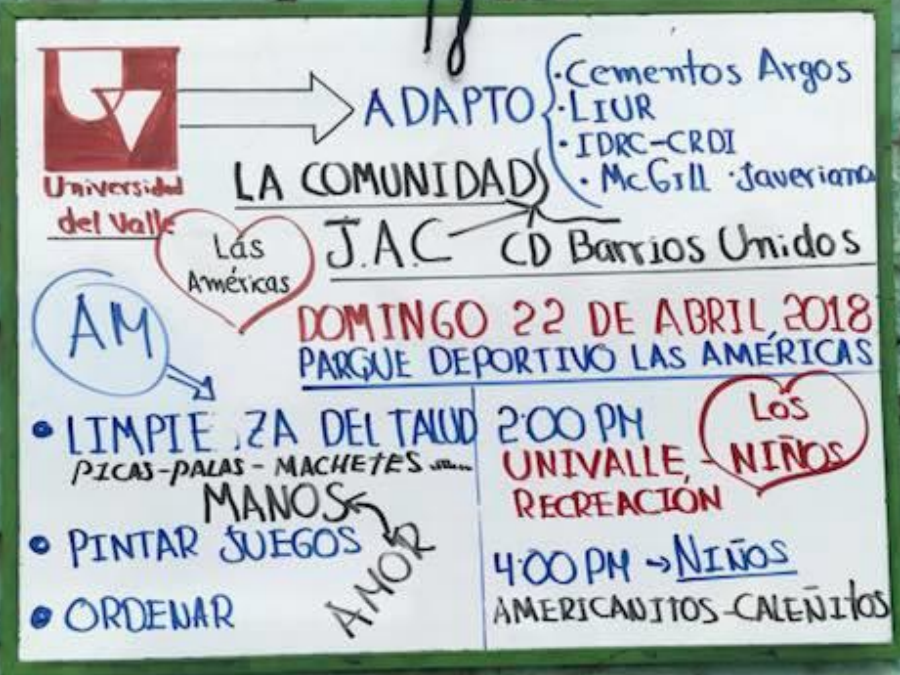 Universidad
del Valle
ADAPTO
· Cementos Argos
· LIUR
· IDRC-CRDI
· McGill · Javeriana
LA COMUNIDAD
J.A.C CD Barrios Unidos
Las
Américas
DOMINGO 22 DE ABRIL 2018
PARQUE DEPORTIVO LAS AMÉRICAS
AM
• LIMPIE ZA DEL TALUD
PICAS-PALAS-MACHETES......
MANOS
AMOR
• PINTAR JUEGOS
• ORDENAR
2:00 PM
UNIVALLE - Los NIÑOS
RECREACIÓN
4:00 PM → NIÑOS
AMERICANITOS-CALEÑITOS